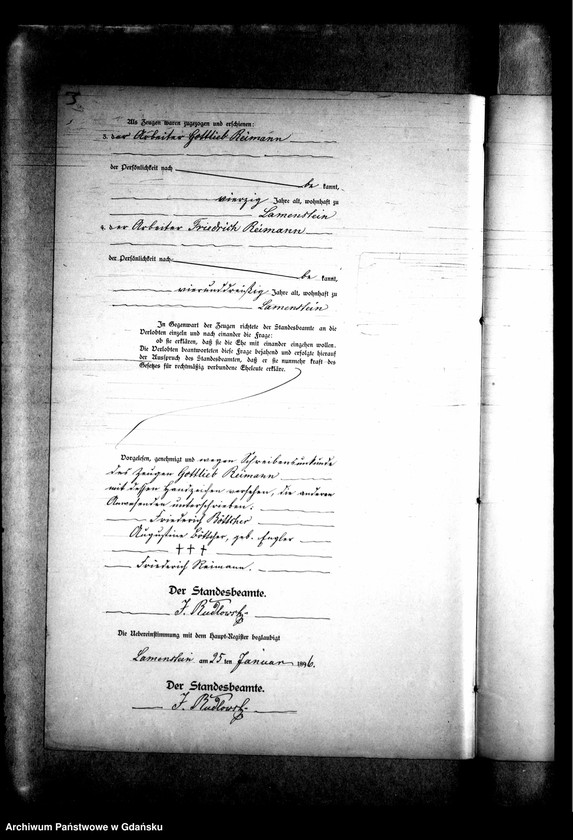 3
Als Zeugen waren zugezogen und erschienen:
3. der Arbeiter Gottlieb Reimann
der Persönlichkeit nach
be kannt,
vierzig Jahre alt, wohnhaft zu
Lamenstein
4. der Arbeiter Friedrich Reimann
der Persönlichkeit nach
be kannt,
vierunddreißig Jahre alt, wohnhaft zu
Lamenstein
In Gegenwart der Zeugen richtete der Standesbeamte an die
Verlobten einzeln und nach einander die Frage:
ob sie erklären, daß sie die Ehe mit einander eingehen wollen.
Die Verlobten beantworteten diese Frage bejahend und erfolgte hierauf
der Ausspruch des Standesbeamten, daß er sie nunmehr kraft des
Gesetzes für rechtmäßig verbundene Eheleute erkläre.
Vorgelesen, genehmigt und wegen Schreibensunkunde
des Zeugen Gottlieb Reimann
mit dessen Handzeichen versehen, die anderen
Anwesenden unterschrieben.
Friederich Böttcher
Augustine Böttcher, geb. Engler
† † †
Friederich Reimann.
Der Standesbeamte.
J. Rudlowski
Die Uebereinstimmung mit dem Haupt-Register beglaubigt
Lamenstein am 25 ten Januar 1896.
Der Standesbeamte.
J. Rudlowski
Archiwum Państwowe w Gdańsku